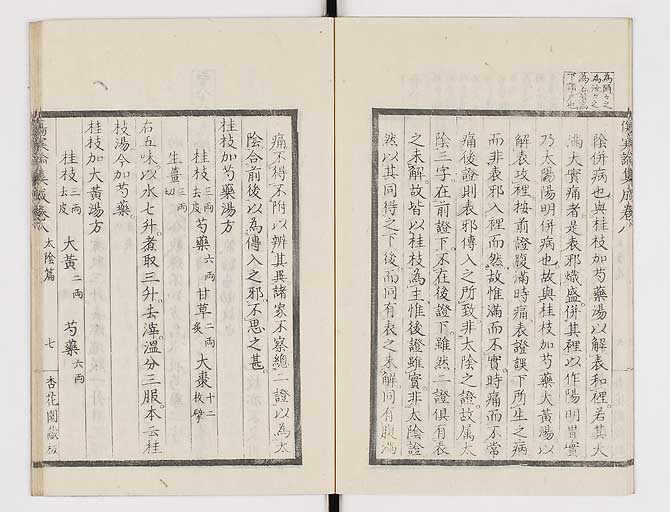 陰併病也與桂枝加芍藥湯以解表和裡若其大
滿大實痛者是表邪熾盛併其裡以作陽明胃實
乃太陽陽明併病也故與桂枝加芍藥大黃湯以
解表攻裡按前證腹滿時痛表證誤下所生之病
而非表邪入裡而然故惟滿而不實時痛而不常
痛後證則表邪傳入之所致非太陰之證故屬太
陰三字在前證下不在後證下雖然二證俱有表
之未解故皆以桂枝為主惟後證雖實非太陰證
然以其同得之下後而同有表之未解同有腹滿
傷寒論集成卷八
痛不得不附以辨其異諸家不察總二證以為太
陰合前後以為傳入之邪不思之甚
桂枝加芍藥湯方
桂枝三兩去皮 芍藥六兩 甘草二兩炙 大棗十二枚擘
生薑三兩切
右五味以水七升煮取三升去滓溫分三服本云桂
枝湯今加芍藥
桂枝加大黃湯方
桂枝三兩去皮 大黃二兩 芍藥六兩
傷寒論集成卷八 太陰篇 七 杏花園藏板